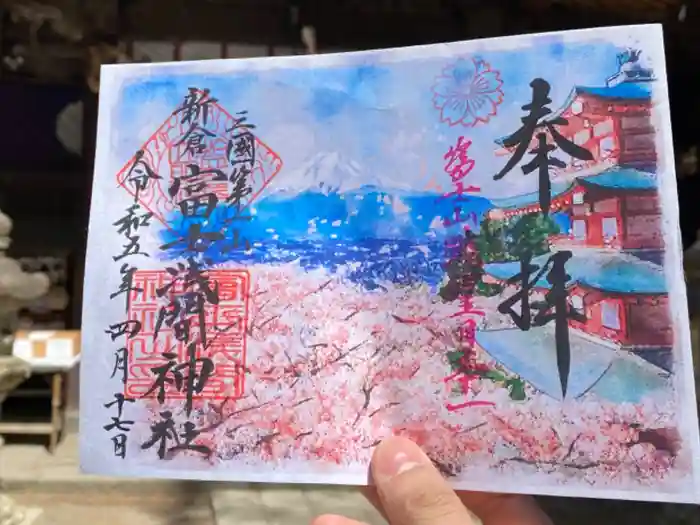 奉拝
三國第一山
新倉富士浅間神社
令和五年四月十七日